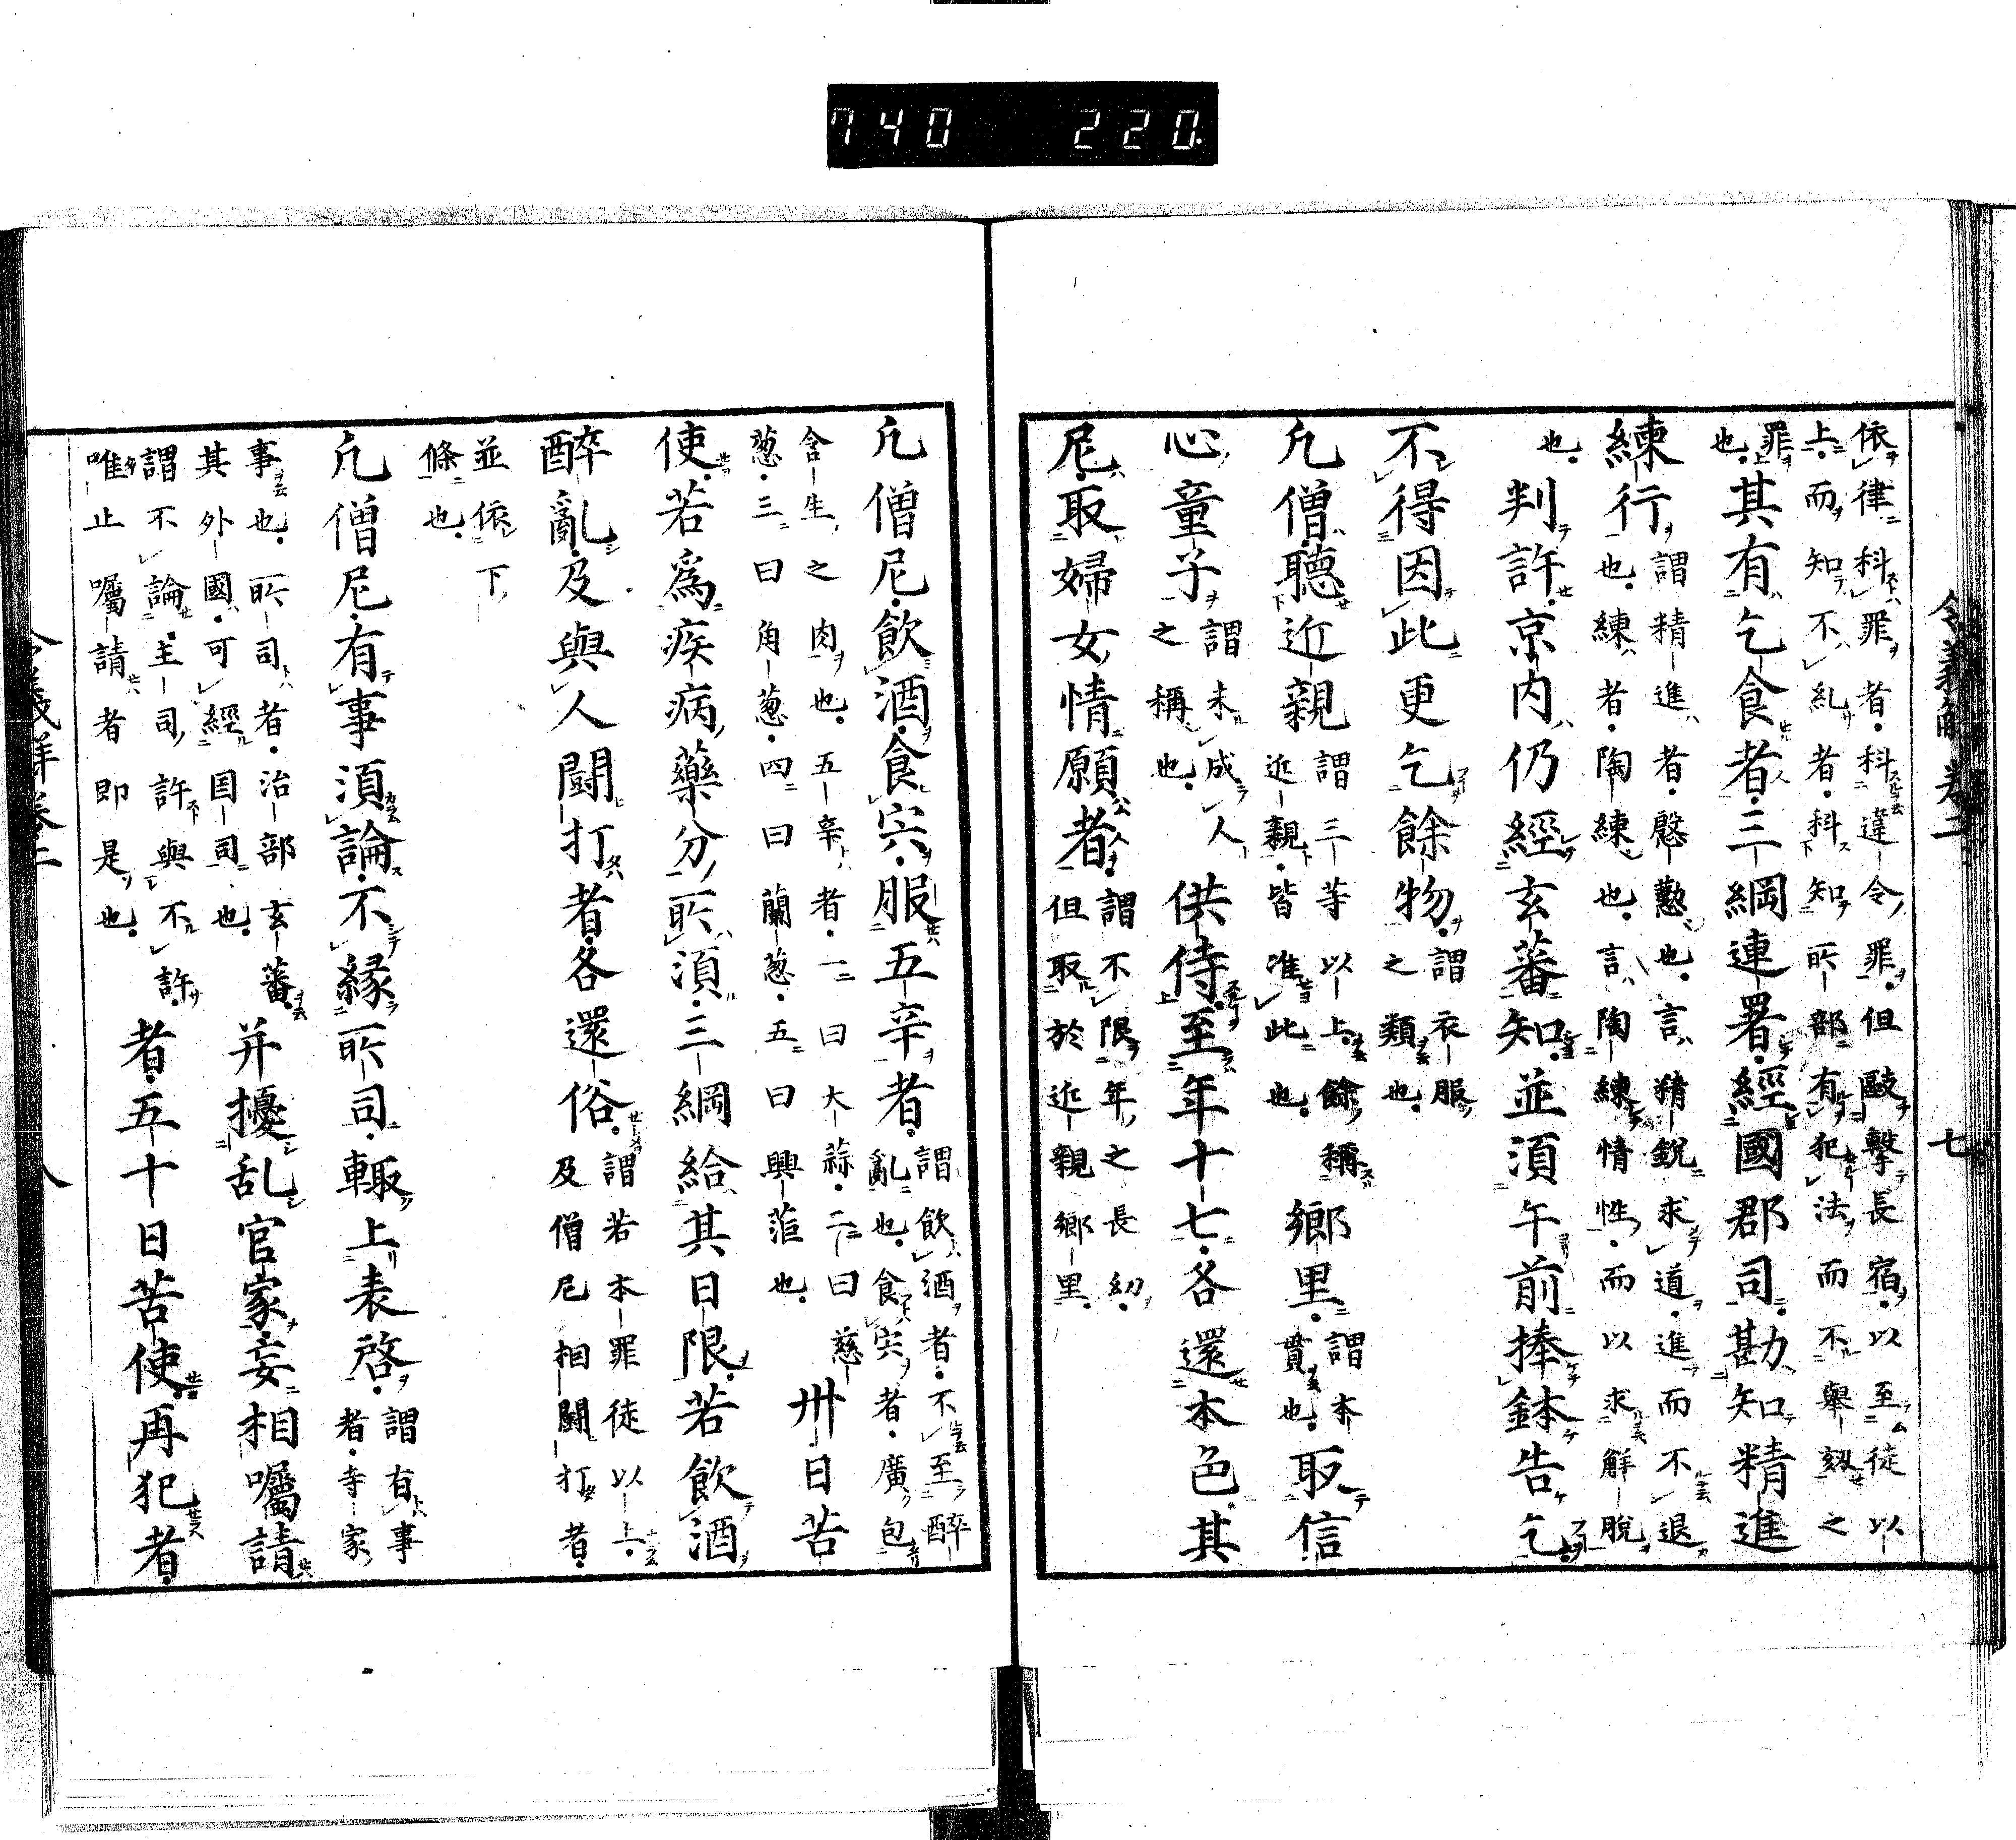 740 220.
依律科罪者科違令罪但毆擊長宿以至徒以
上而知不糺者科知所部有犯法而不舉劾之
罪
也其有乞食者三綱連署經國郡司勘知精進
練行
謂精進者慇懃也言精銳求道進而不退
也練者陶練也言陶練情性而以求解脫
也
判許京内仍經玄蕃知並須午前捧鉢告乞
不得因此更乞餘物
謂衣服
之類也
凡僧聽近親
謂三等以上餘稱
近親皆准此也
鄉里
謂本
貫也
取信
心童子
謂未成人
之稱也
供侍至年十七各還本色其
尼取婦女情願者
謂不限年之長幼
但取於近親鄉里
凡僧尼飲酒食宍服五辛者
謂飲酒者不至醉
亂也食宍者廣包
含生之肉也五辛者一曰大蒜二曰慈
葱三曰角葱四曰蘭葱五曰興蕖也
卅日苦
使若爲疾病藥分所須三綱給其日限若飲酒
醉亂及與人鬪打者各還俗
謂若本罪徒以上
及僧尼相鬪打者
並依下
條也
凡僧尼有事須論不緣所司輙上表啓
謂有事
者寺家
事也所司者治部玄蕃
其外國可經国司也
并擾乱官家妄相囑請
謂不論主司許與不許
唯止囑請者即是也
者五十日苦使再犯者
令義解卷二
七